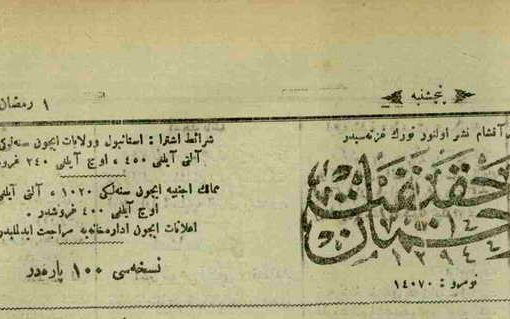 پنجشنبه
١ رمضان
آقشام نشر اولنور تورك غزته‌سیدر
ترجمان حقیقت
١٢٩٤
نومرو : ١٤٠٧٠
شرائط اشترا : استانبول وولایات ایچون سنه‌لكی
آلتی آیلغی ٤٥٠ ، اوچ آیلغی ٢٤٠ غروشدر
ممالك اجنبیه ایچون سنه‌لكی ١٠٢٠ ، آلتی آیلغی
اوچ آیلغی ٤٠٠ غروشدر .
اعلانات ایچون اداره‌خانه‌یه مراجعت ایدلملیدر
نسخه‌سی ١٠٠ پاره‌در